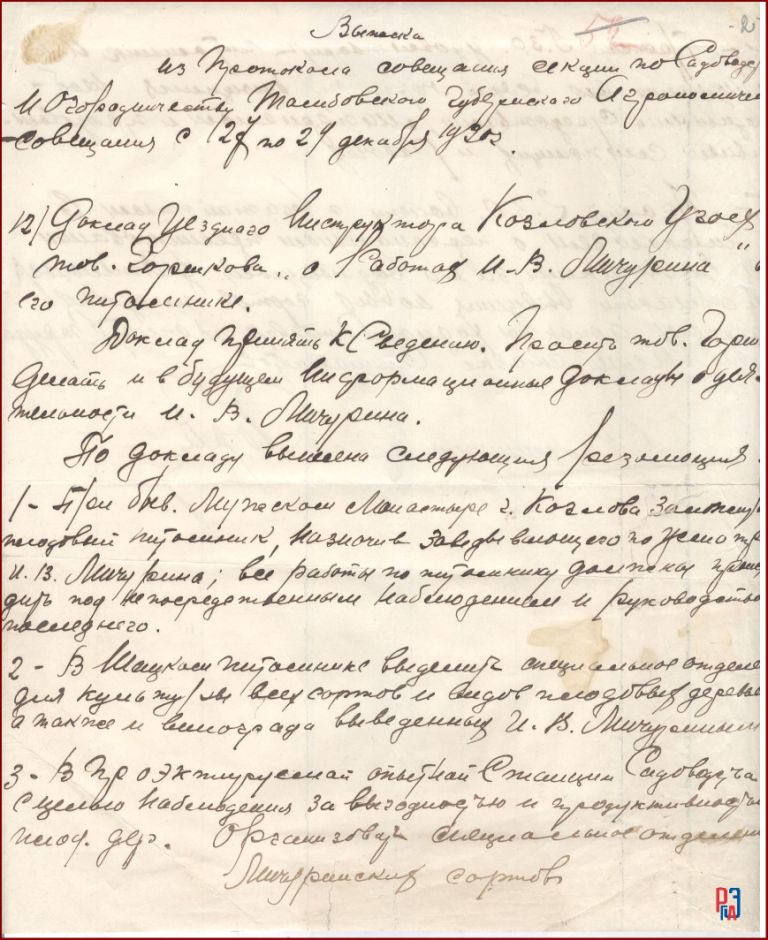 - 2
52
Выписка
из Протокола совещания секции по Садоводс
и Огородничеству Тамбовского Губернского Агрономичес
совещания с 27 по 29 декабря 1920 г.
12) Доклад Уездного Инструктора Козловского Уезда
тов. Горшкова „о Работах И. В. Мичурина" в
его питомнике.
Доклад принять к Сведению. Просить тов. Горш
делать и в будущем информационные доклады о дея-
тельности И. В. Мичурина.
По докладу вынесена следующия резолюция.
1 - При быв. Мужском Монастыре г. Козлова заложить
плодовый питомник, назначив заведывающего по усмотр
И. В. Мичурина; все работы по питомнику должны произ
дить под непосредственным наблюдением и руководство
последнего.
2 - В Шацком питомнике выделить специальное отделе
для культуры всех сортов и видов плодовых деревье
а также и винограда выведенных И. В. Мичуриным
3 - В Проэктируемой опытной Станции Садоводства
с целью наблюдения за выгодностью и продуктивностью
плод. дер. Организовать специальное отделени
Мичуринских сортов
РГАЭ